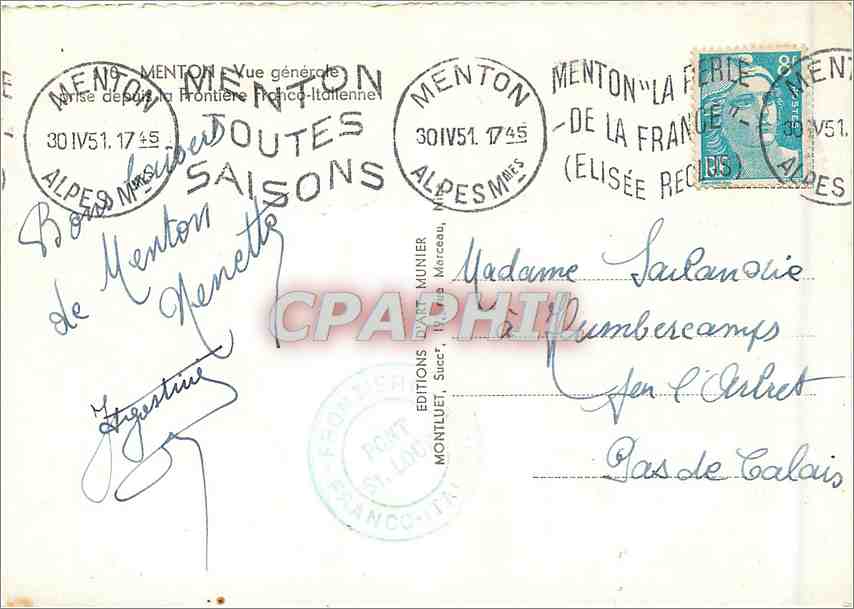 116 - MENTON - Vue générale
prise depuis la Frontière Franco-Italienne
MENTON
30 IV 51. 17 45
ALPES Mmes
MENTON
TOUTES
SAISONS
MENTON
30 IV 51. 17 45
ALPES Mmes
MENTON "LA PERLE
- DE LA FRANCE" -
(ELISÉE RECLUS)
MENT
30 IV 51.
ALPES
8F
POSTES
Bons baisers
de Menton
Nenette
EDITIONS D'ART MUNIER
MONTLUET, Succr, 19, rue Marceau, Nice
CPAPHIL
FRONTIERE
FRANCO-ITAL
PONT
St. LOUIS
Madame
à Humbercamps
par l'Arbret
Pas de Calais